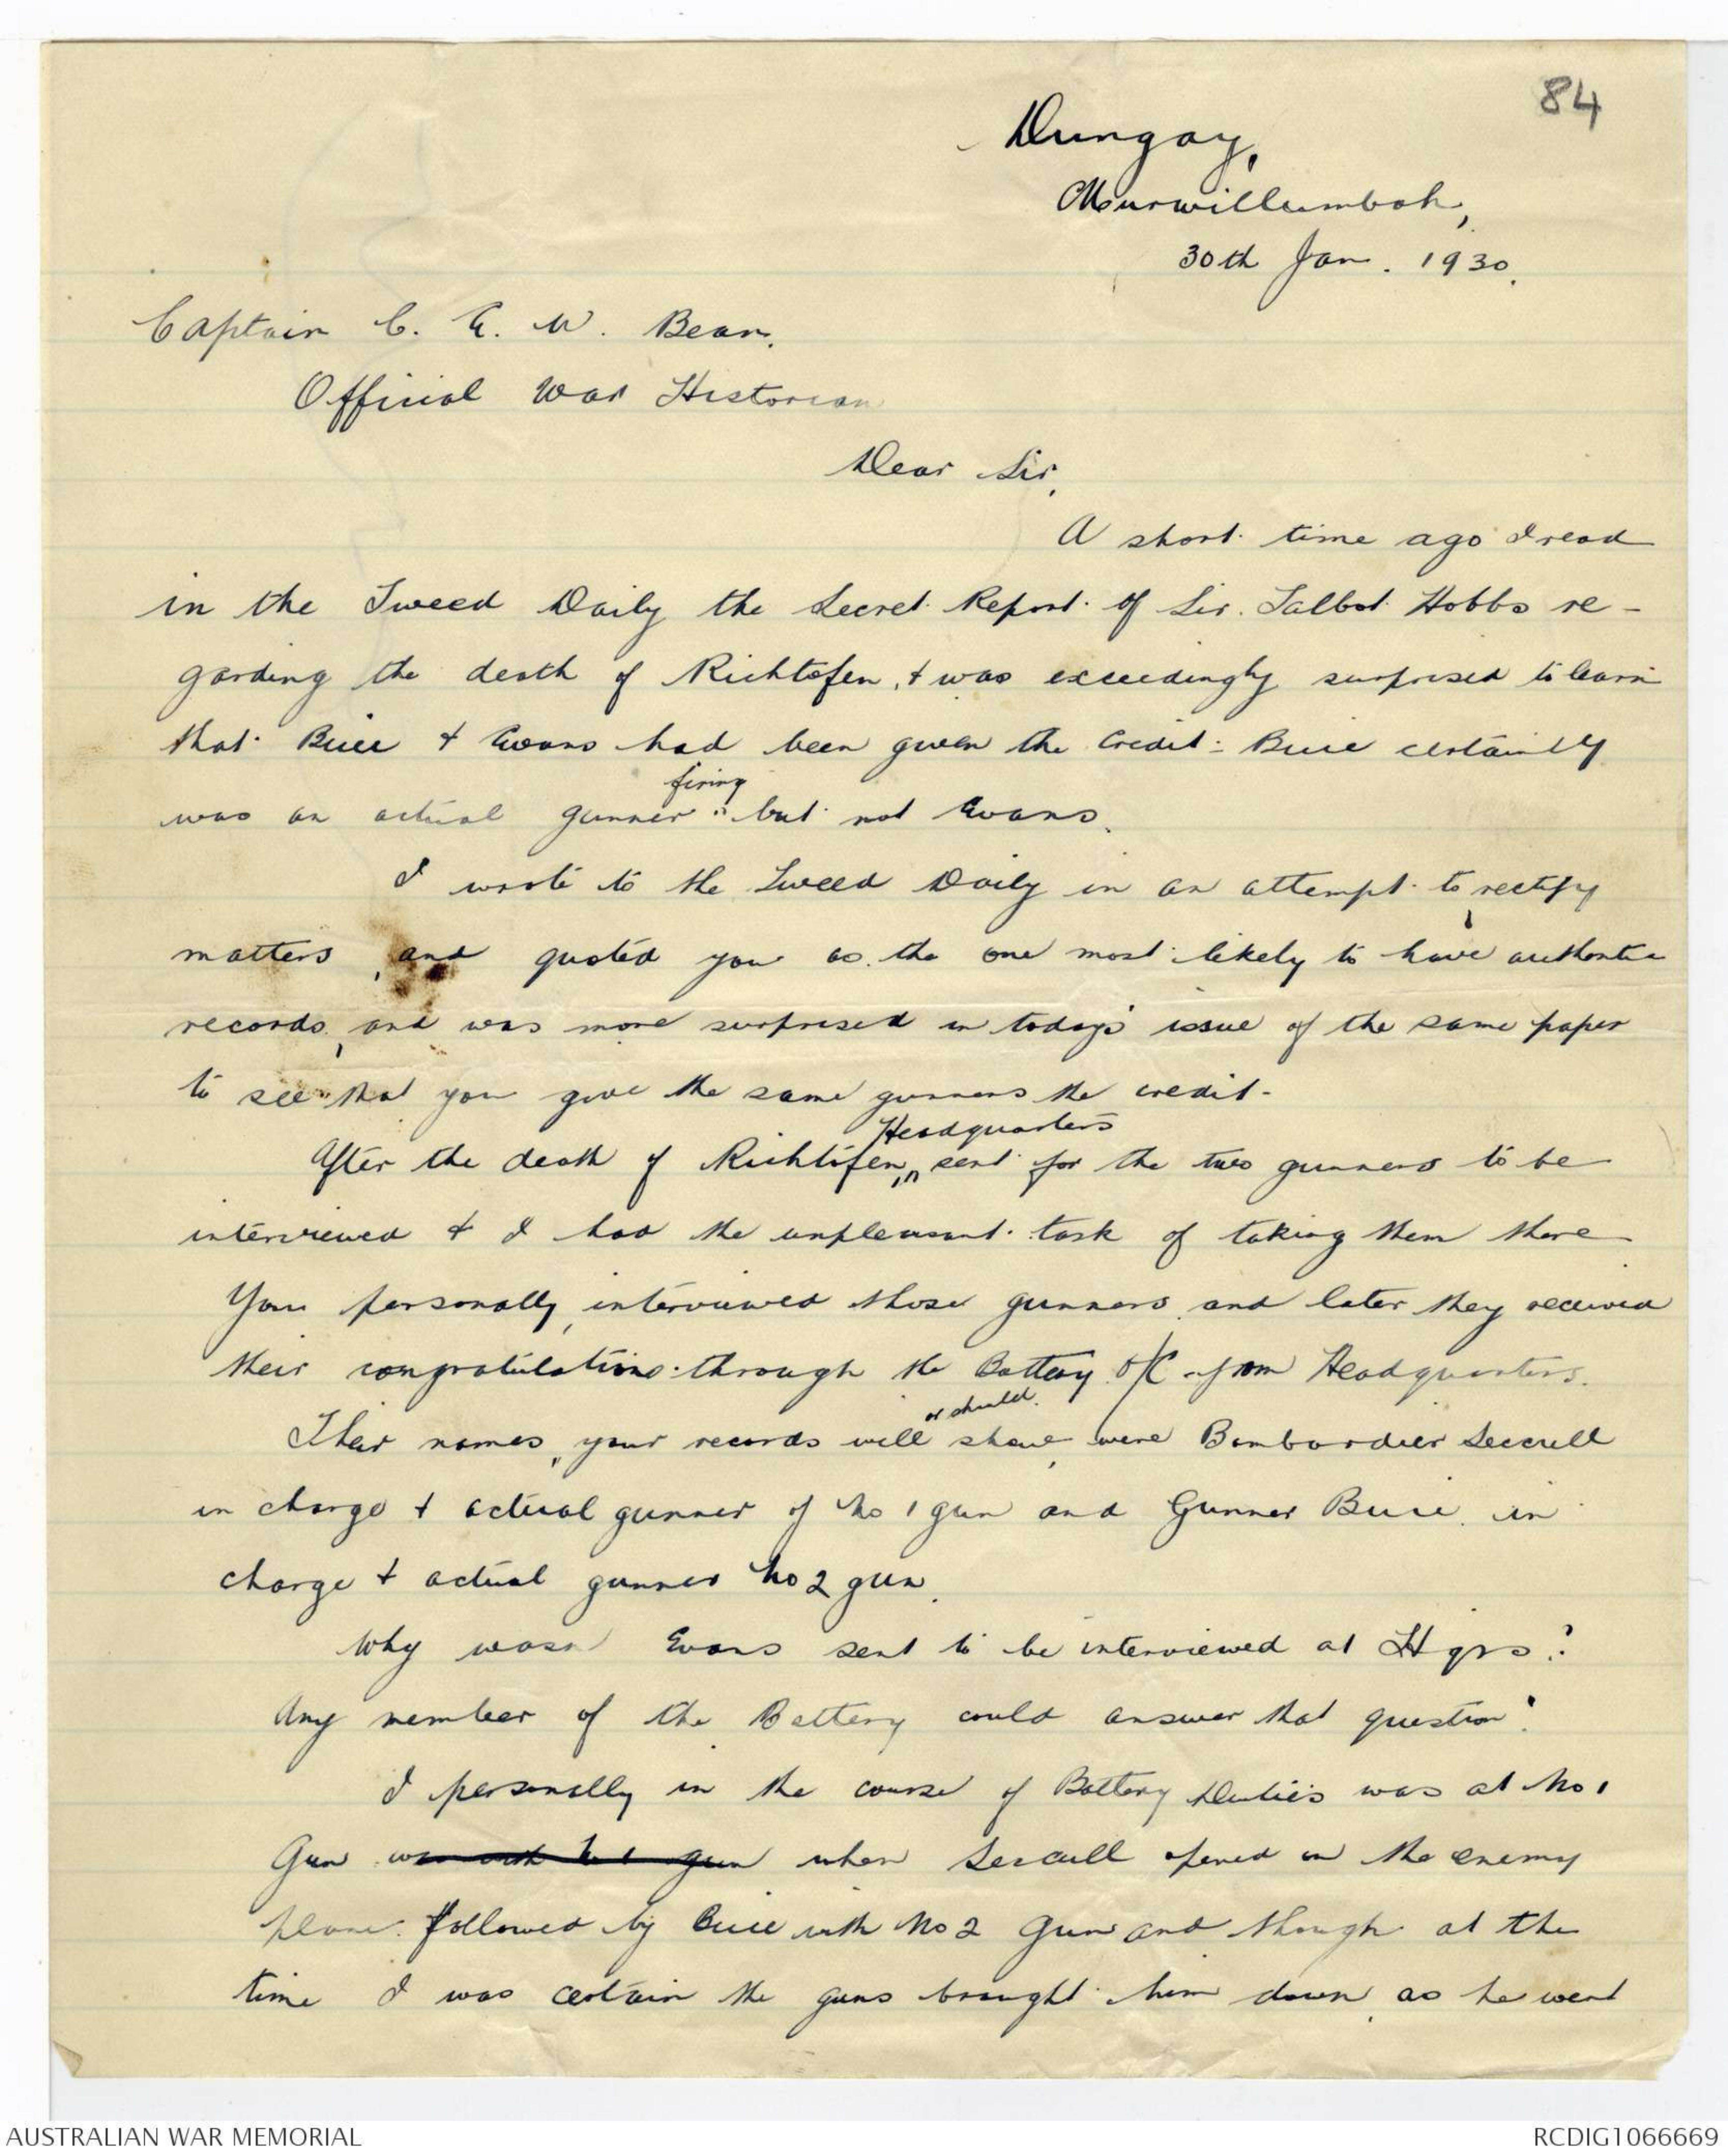 84
Dungay,
Murwillumbah,
30th Jan. 1930.
Captain C. E. W. Bean,
Official War Historian
Dear Sir,
A short time ago I read
in the Tweed Daily the Secret Report of Sir. Talbot Hobbs re-
garding the death of Richtofen, & was exceedingly surprised to learn
that Buie & Evans had been given the credit: Buie certainly
firing
was an actual gunner but not Evans.
I wrote to the Tweed Daily in an attempt to rectify
matters, and quoted you as the one most likely to have authentic
records, and was more surprised in today's issue of the same paper
to see that you give the same gunners the credit.
Headquarters
After the death of Richtofen, sent for the two gunners to be
interviewed & I had the unpleasant task of taking them there
You personally, interviewed those gunners and later they received
their congratulations through the Battery O/C from Headquarters.
or should.
Their names, your records will show, were Bombardier Seccull
in charge & actual gunner of No 1 gun and Gunner Buie in
charge & actual gunner No 2 gun.
Why wasn Evans sent to be interviewed at Hqrs?
Any member of the Battery could answer that question!
I personally in the course of Battery Duties was at No 1
Gun when Seccull opened on the enemy
plane followed by Buie with No 2 Gun and though at the
time I was certain the guns brought him down, as he went
AUSTRALIAN WAR MEMORIAL
RCDIG1066669